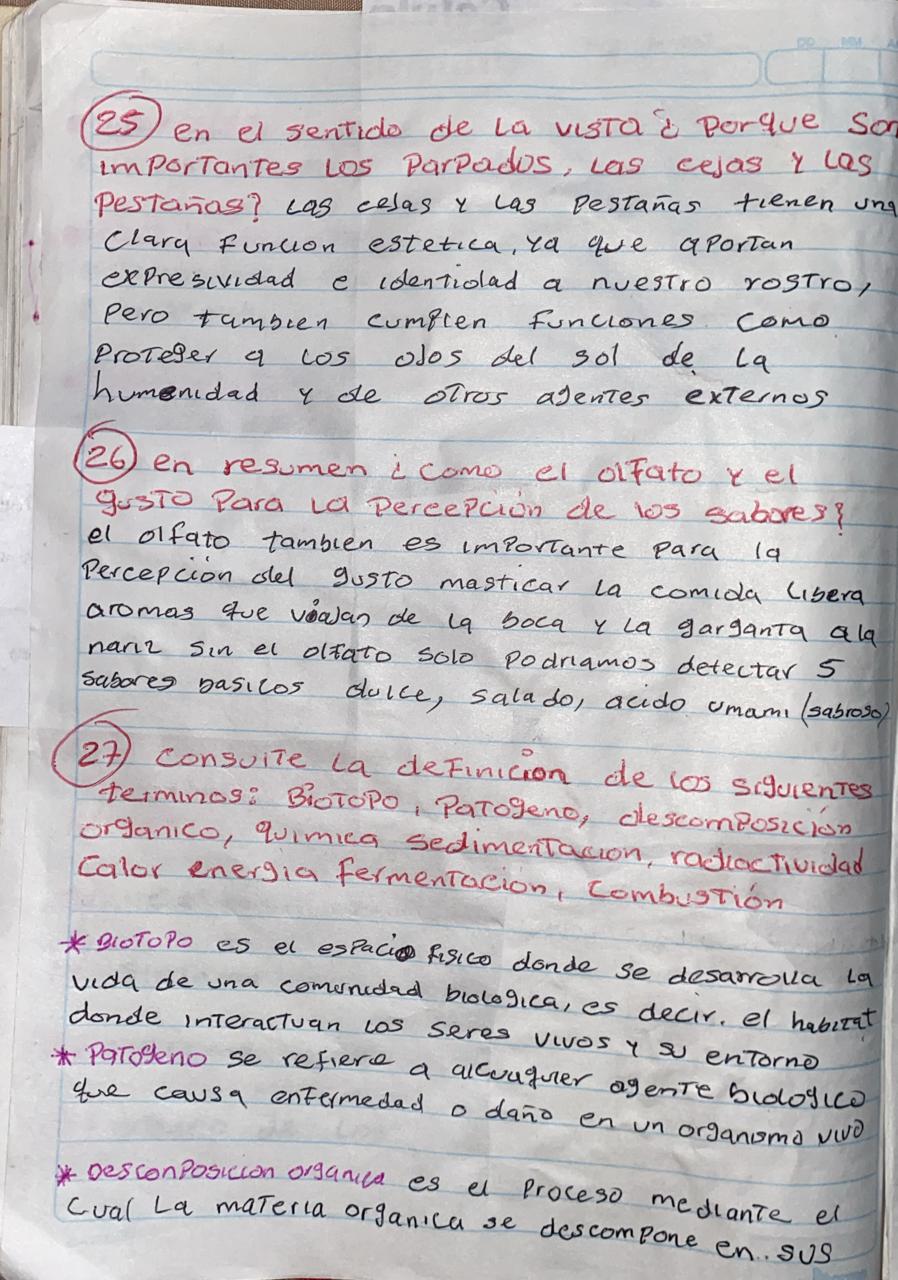 DD MM
25 en el sentido de la vista ¿ Porque son
importantes los Parpados, las cejas y las
Pestañas? Las cejas y las Pestañas tienen una
clara funcion estetica, ya que aportan
expresividad e identidad a nuestro rostro,
Pero tambien cumplen funciones como
Proteger a los ojos del sol de la
humenidad y de otros agentes externos
26 en resumen ¿ como el olfato y el
gusto Para la percepción de los sabores?
el olfato tambien es importante para la
Percepción del gusto masticar la comida libera
aromas que viajan de la boca y la garganta ala
nariz sin el olfato solo podriamos detectar 5
sabores basicos dulce, salado, acido umami (sabroso)
27 consulte la definición de los siguientes
terminos: Biotopo, Patogeno, descomposición
organico, quimica sedimentacion, radiactividad
Calor energia fermentación, combustión
* Biotopo es el espacio fisico donde se desarrolla la
vida de una comunidad biologica, es decir. el habitat
donde interactuan los seres vivos y su entorno
* Patogeno se refiere a alcuaquier agente biologico
que causa enfermedad o daño en un organismo vivo
* Desconposicion organica es el proceso mediante el
cual La materia organica se descompone en. sus